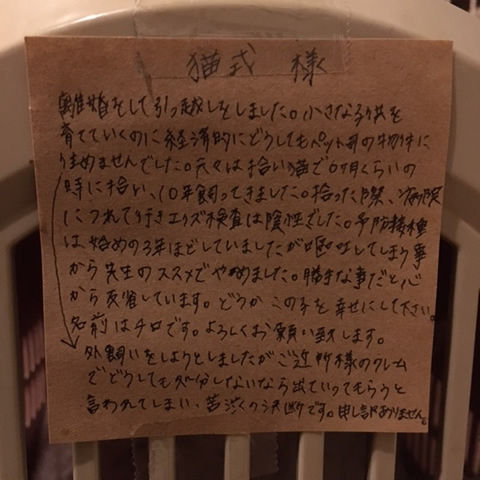 猫式 様
離婚をして引っ越しをしました。小さな子供を
育てていくのに経済的にどうしてもペット可の物件に
住めませんでした。元々は拾い猫で0ヶ月くらいの
時に拾い、10年飼ってきました。拾った際、病院
につれて行きエイズ検査は陰性でした。予防接種
は始めの3年ほどしていましたが嘔吐してしまう事
から先生のススメでやめました。勝手な事だと心
から反省しています。どうかこの子を幸せにして下さい。
名前はチロです。よろしくお願い致します。
外飼いをしようとしましたがご近所様のクレーム
でどうしても処分しないなら出ていってもらうと
言われてしまい、苦渋の決断です。申し訳ありません。